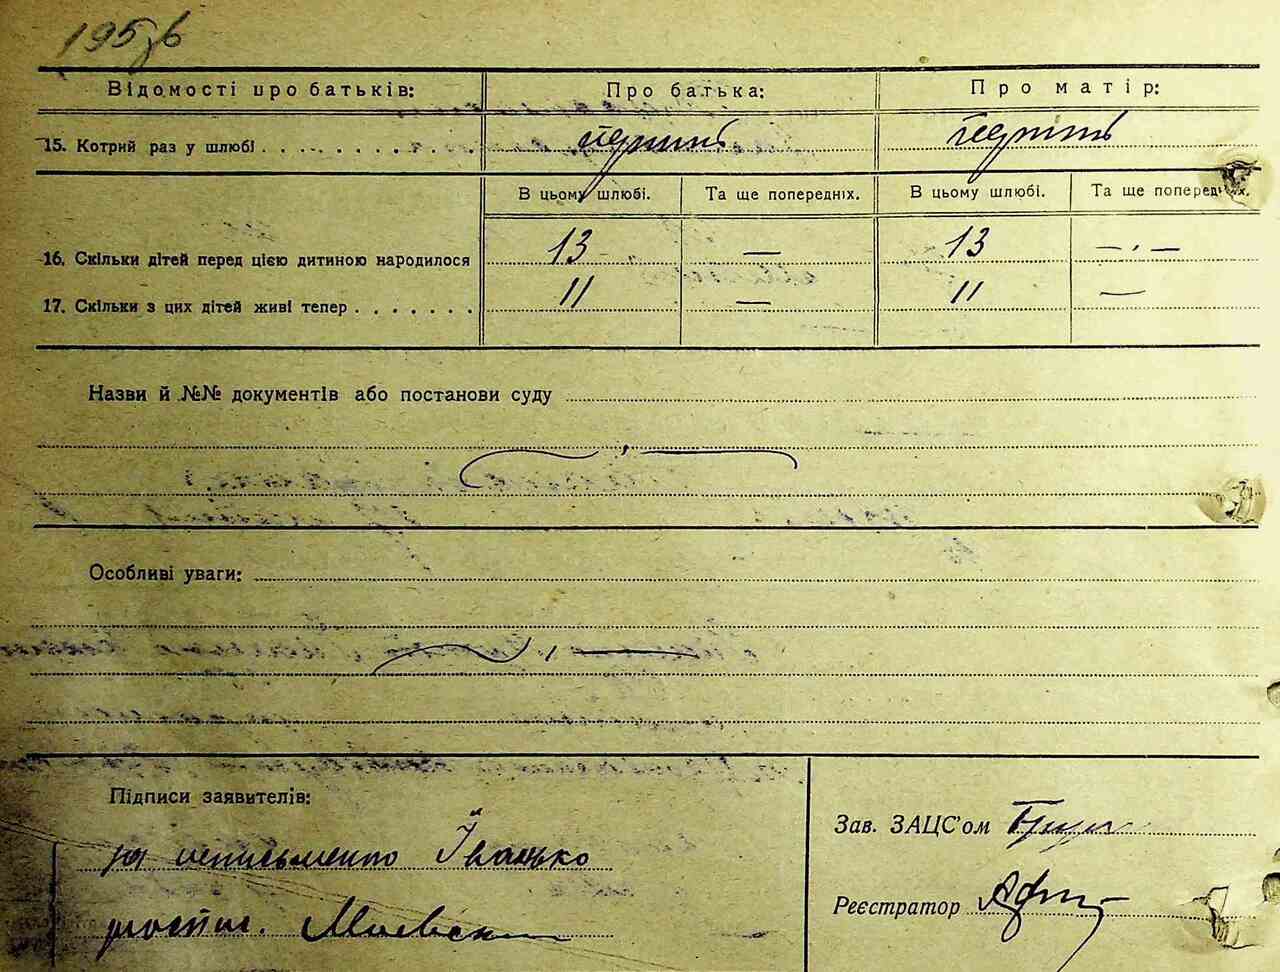 Відомості про батьків: Про батька: Про матір:
15. Котрий раз у шлюбі . . . . . . . . . . перший перший
В цьому шлюбі. Та ще попередніх. В цьому шлюбі. Та ще попередніх.
16. Скільки дітей перед цією дитиною народилося 13 — 13 — . —
17. Скільки з цих дітей живі тепер . . . . . . . 11 — 11 —
Назви й №№ документів або постанови суду
Особливі уваги:
Підписи заявителів:
за неписьменто Іванько
Зав. ЗАЦС'ом
Реєстратор